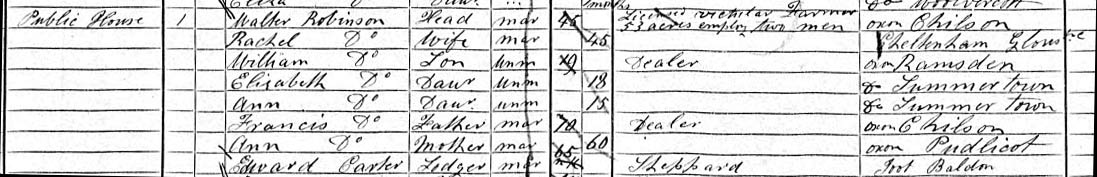 Do Woolvercot
Public House 1 Walter Robinson Head mar 45 Licensed victular Farmer Oxon Chilson
53 acres employ two men
Rachel Do Wife mar 45 Cheltenham Glouste
William Do Son unm 19 Dealer oxn Ramsden
Elizabeth Do Daur unm 18 Do Summertown
Ann Do Daur. unm 15 Do Summer town
Francis Do Father mar 70 Dealer oxon Chilson
Ann Do Mother mar 60 oxon Pudlicot
Edward Carter Lodger mar Sheppard Toot Baldon